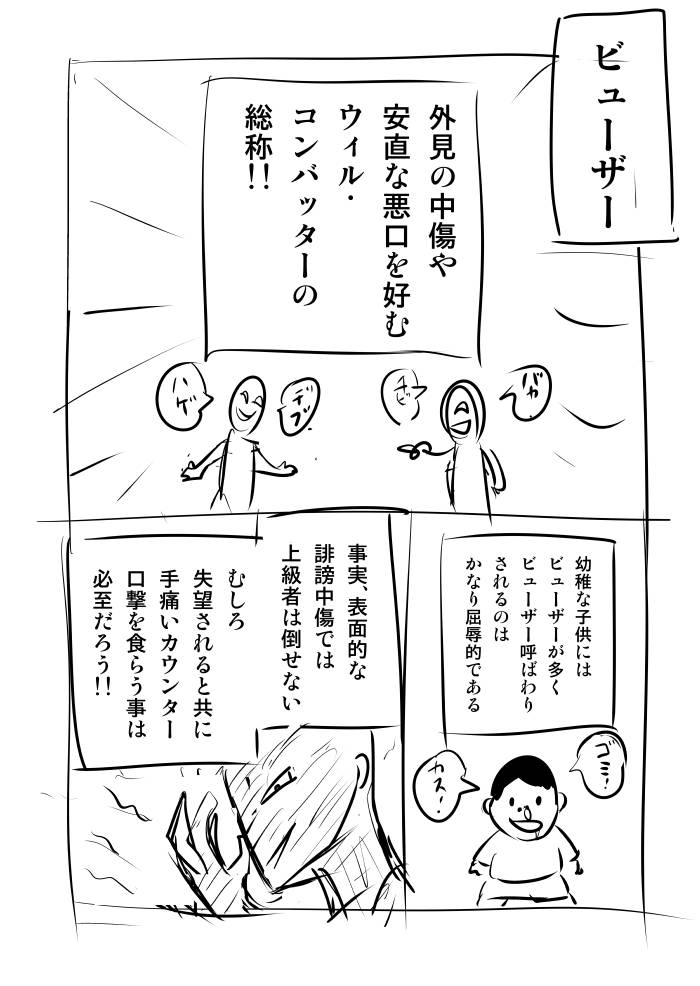 ビューザー
外見の中傷や
安直な悪口を好む
ウィル・
コンバッターの
総称!!
バカ
チビ
デブ
ハゲ
幼稚な子供には
ビューザーが多く
ビューザー呼ばわり
されるのは
かなり屈辱的である
ゴミ!
カス!
事実、表面的な
誹謗中傷では
上級者は倒せない
むしろ
失望されると共に
手痛いカウンター
口撃を食らう事は
必至だろう!!